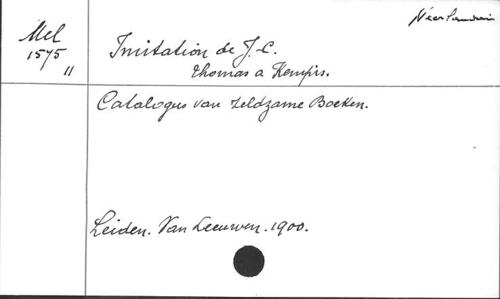 Néerlandais
Mel
1575
11
Imitation de J.-C.
Thomas a Kempis.
Catalogus van zeldzame Boeken.
Leiden. Van Leeuwen. 1900.